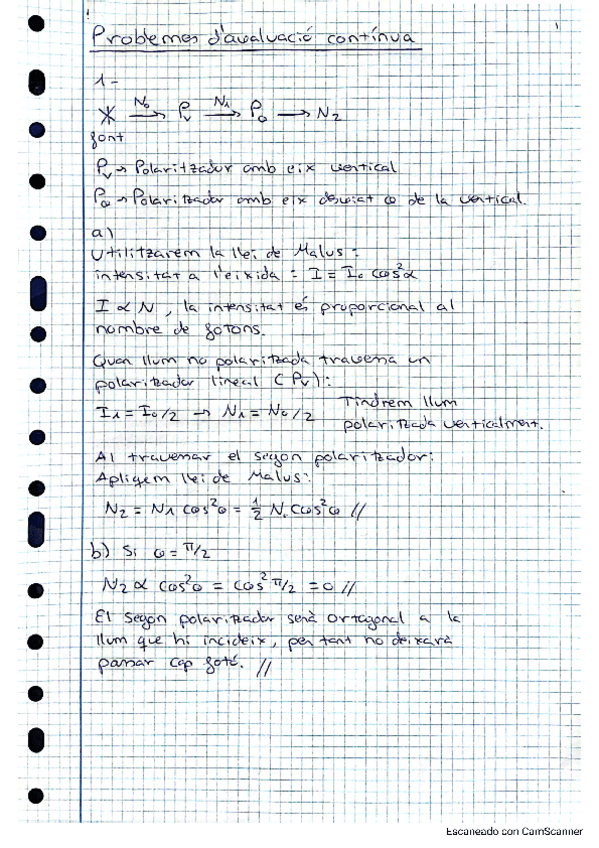 Problemes d'avaluació contínua
1-
N₀ N₁
font → Pᵥ → P_θ → N₂
Pᵥ → Polaritzador amb eix vertical
P_θ → Polaritzador amb eix desviat θ de la vertical.
a)
Utilitzarem la llei de Malus:
intensitat a l'eixida: I = I₀ cos²α
I ∝ N, la intensitat és proporcional al
nombre de fotons.
Quan llum no polaritzada travessa un
polaritzador lineal (Pᵥ):
I₁ = I₀/2 → N₁ = N₀/2 Tindrem llum
polaritzada verticalment.
Al travessar el segon polaritzador:
Apliquem llei de Malus:
N₂ = N₁ cos²θ = ½ N₀ cos²θ //
b) Si θ = π/2
N₂ ∝ cos²θ = cos² π/2 = 0 //
El segon polaritzador serà ortogonal a la
llum que hi incideix, per tant no deixarà
passar cap fotó. //
Escaneado con CamScanner